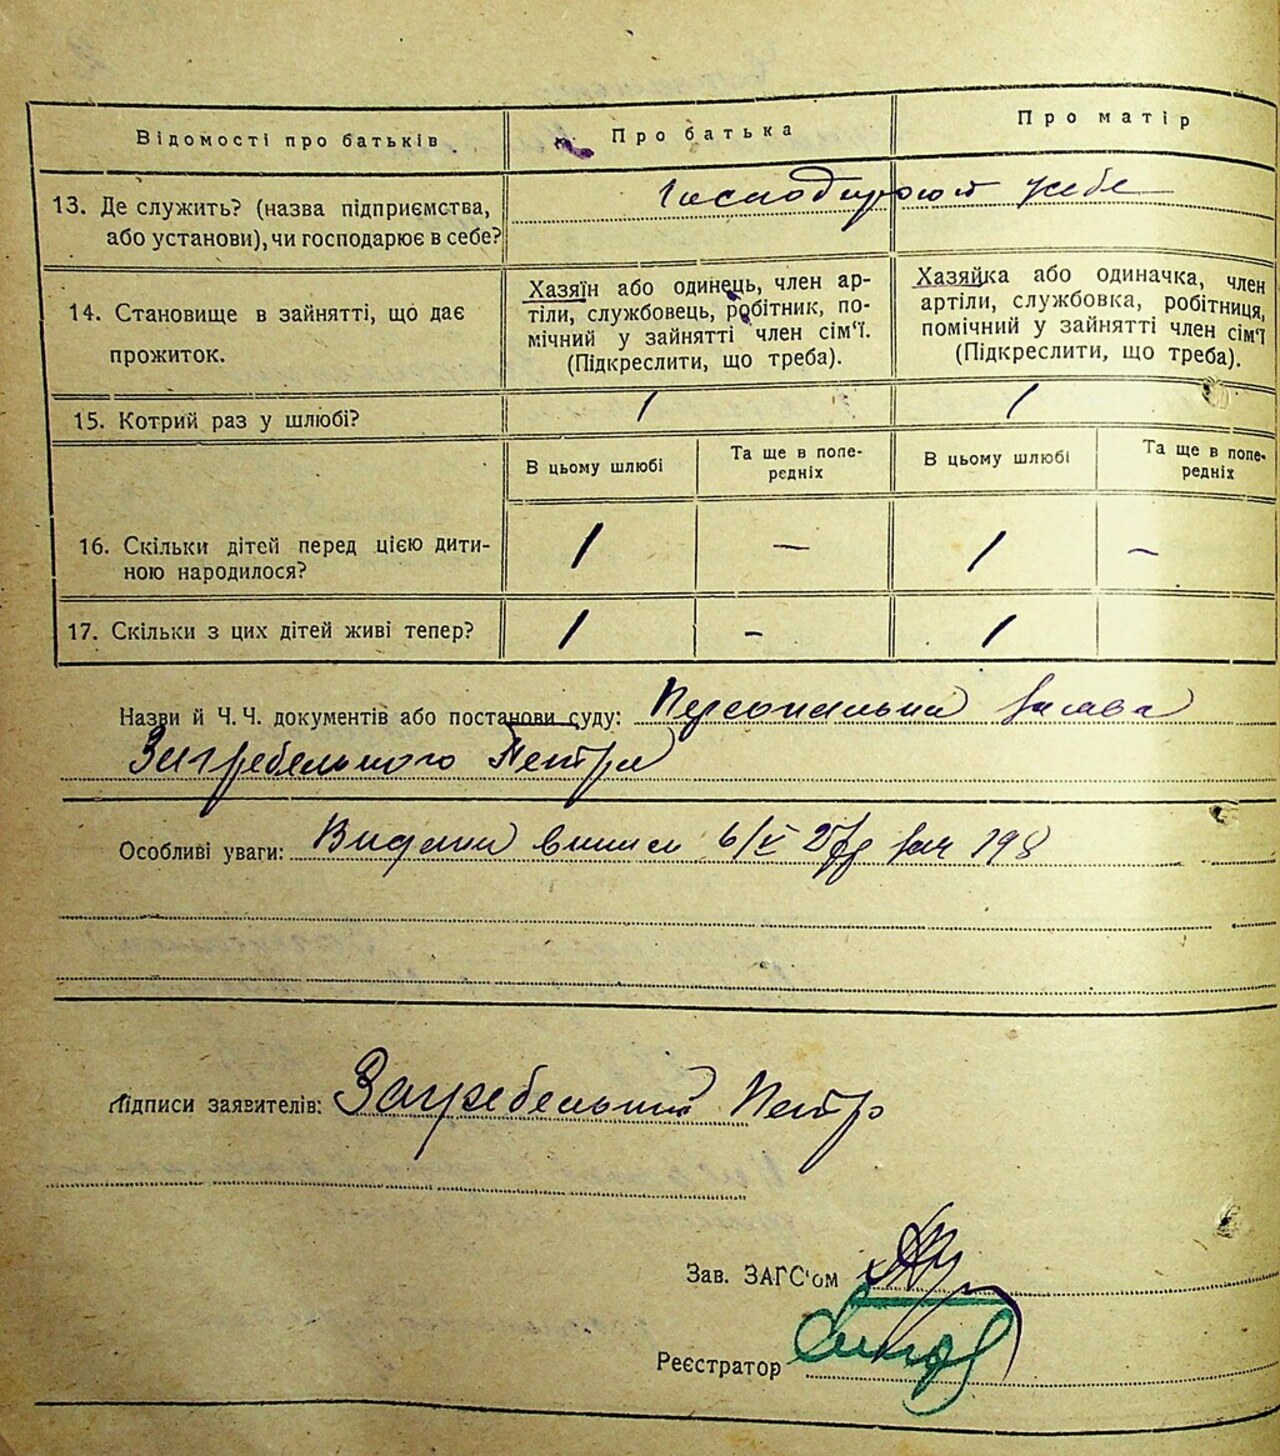 Відомості про батьків
Про батька
Про матір
13. Де служить? (назва підприємства,
або установи), чи господарює в себе?
Господарюют у себе
14. Становище в зайнятті, що дає
прожиток.
Хазяїн або одинець, член ар-
тіли, службовець, робітник, по-
мічний у зайнятті член сім'ї.
(Підкреслити, що треба).
Хазяйка або одиначка, член
артіли, службовка, робітниця,
помічний у зайнятті член сім'ї
(Підкреслити, що треба).
15. Котрий раз у шлюбі?
1
1
В цьому шлюбі
Та ще в попе-
редніх
В цьому шлюбі
Та ще в попе-
редніх
16. Скільки дітей перед цією дити-
ною народилося?
1 — 1 —
17. Скільки з цих дітей живі тепер?
1 - 1
Назви й Ч. Ч. документів або постанови суду: Персональна заява
Загребельного Петра
Особливі уваги: 6/V 198
Підписи заявителів: Загребельний Петро
Зав. ЗАГС'ом
Реєстратор